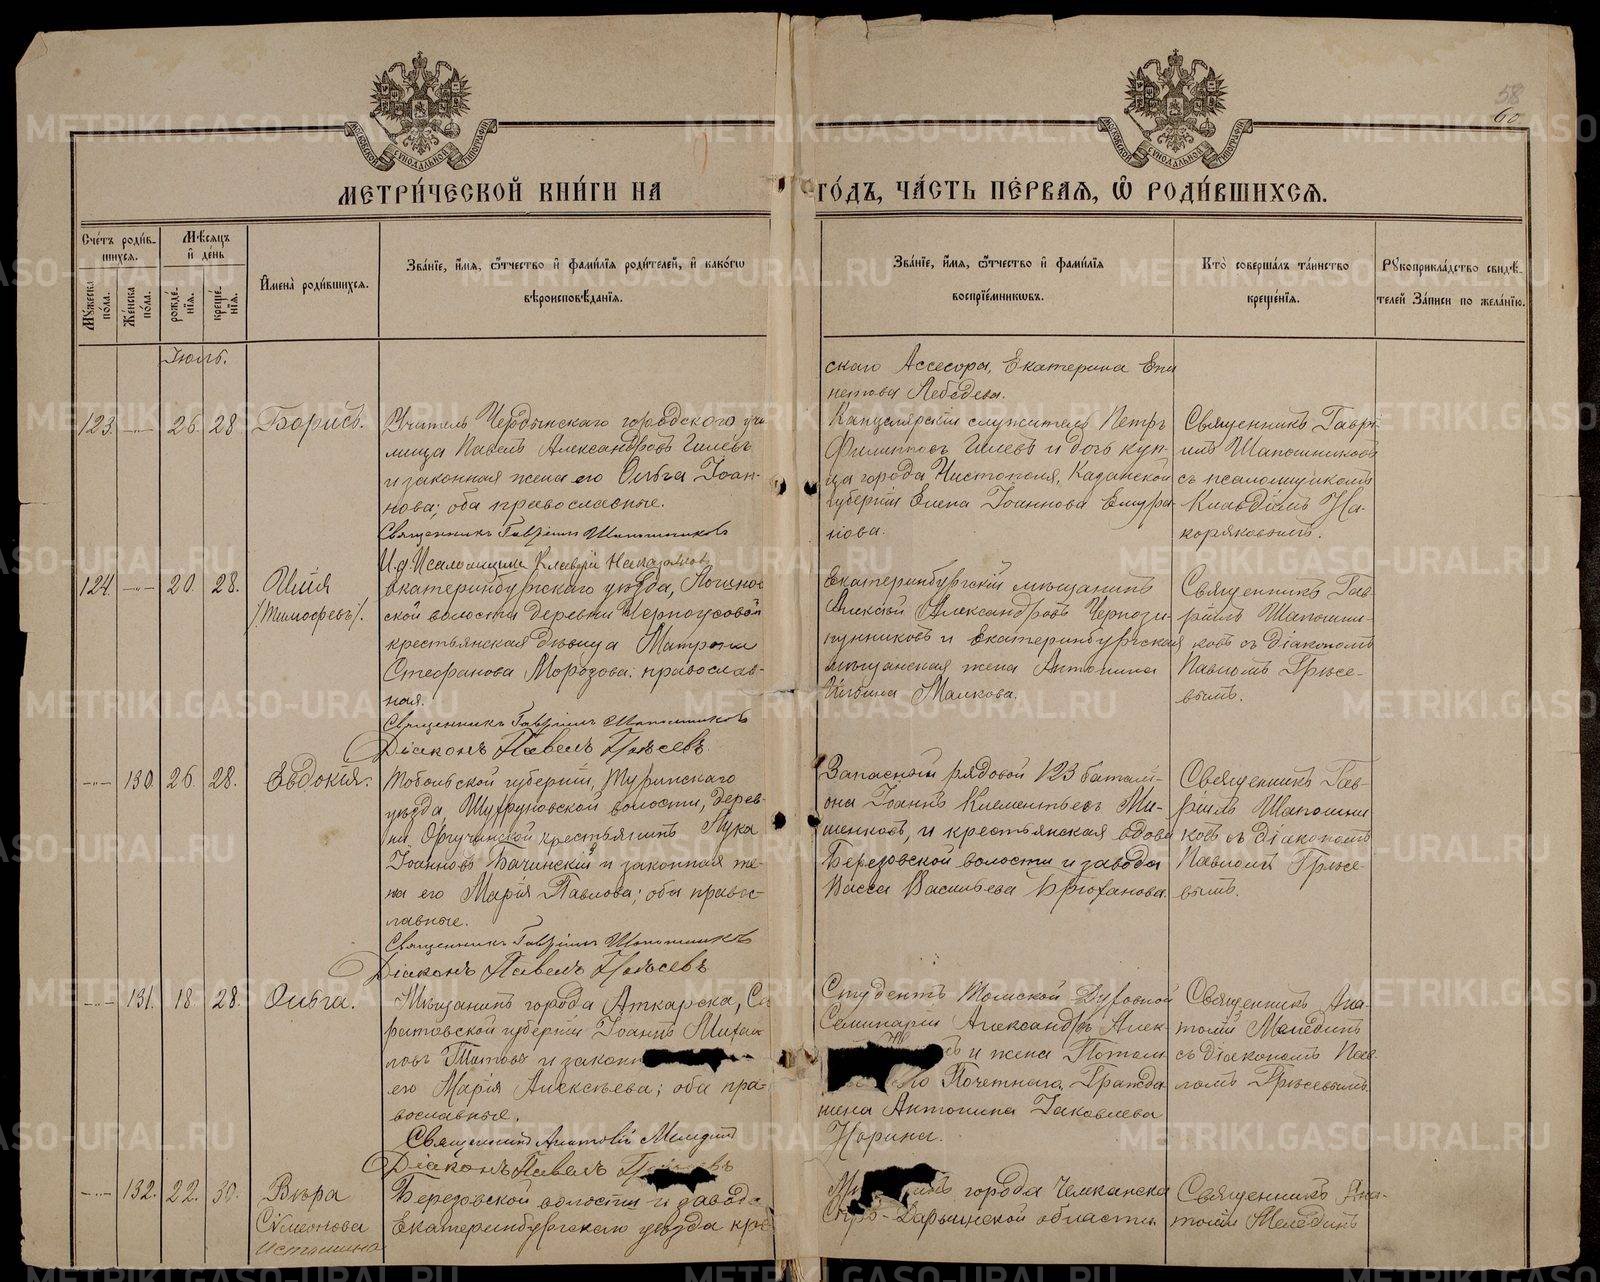 58
60
МОСКОВСКОЙ СѴНОДАЛЬНОЙ ТИПОГРАФІИ
МОСКОВСКОЙ СѴНОДАЛЬНОЙ ТИПОГРАФІИ
МЕТРИ́ЧЕСКОЙ КНИ́ГИ НА ГО́ДЪ, ЧА́СТЬ ПЕ́РВАЯ, Ѡ҆ РОДИ́ВШИХСЯ.
Сче́тъ роди́в-
шихся.
Мꙋ́жеска по́ла.
Же́нска по́ла.
Мѣ́сяцъ
и҆ де́нь
рожде́-нїя.
креще́-нїя.
И҆мена̀ роди́вшихся.
Зва́нїе, и҆́мя, ѻ҆́тчество и҆ фами́лїя роди́телей, и҆ како́гѡ
вѣроисповѣ́данїя.
Зва́нїе, и҆́мя, ѻ҆́тчество и҆ фами́лїя
воспрїе́мникѡвъ.
Кто̀ соверша́лъ та́инство
креще́нїя.
Рꙋкоприкла́дство свидѣ́-
телей за́писи по жела́нїю.
Іюль.
скаго Ассесора, Екатерина Епи
нетова Лебедева.
123. —"— 26. 28 Борисъ.
Учитель Чердынскаго городского учи
лища Павелъ Александровъ Гилевъ
и законная жена его Ольга Іоан-
нова; оба православные.
Священникъ Гавріилъ Шапошниковъ
И.д. Псаломщика Клавдій Накоряковъ
Канцелярскій служитель Петръ
Филипповъ Гилевъ и дочь куп-
ца города Чистополя, Казанской
губерніи Елена Іоаннова
нова.
Священникъ Гаврі
илъ Шапошниковъ
съ псаломщикомъ
Клавдіемъ На-
коряковымъ.
124. —"— 20. 28. Илія
/Тимофеевъ/.
Екатеринбургскаго уѣзда,
ской волости деревни Черноусовой
крестьянская дѣвица Матрона
Стефанова Морозова; православ-
ная.
Священникъ Гавріилъ Шапошниковъ
Діаконъ Павелъ
Екатеринбургскій мѣщанинъ
Алексѣй Александровъ
пунниковъ и Екатеринбургская
мѣщанская жена Антонина
Малкова.
Священникъ Гав-
ріилъ Шапошни-
ковъ съ діакономъ
Павломъ
вымъ.
—"— 130. 26. 28. Евдокія.
Тобольской губерніи, Туринскаго
уѣзда, волости, дерев-
ни крестьянинъ Лука
Іоанновъ Бачинскій и законная же-
на его Марія Павлова; оба право-
славные.
Священникъ Гавріилъ Шапошниковъ
Діаконъ Павелъ
Запасной рядовой 123 баталі-
она Іоаннъ Клементьевъ Ми-
шенковъ, и крестьянская вдова
Березовской волости и завода
Васса Васильева Брюханова.
Священникъ Гав-
ріилъ Шапошни
ковъ съ діакономъ
Павломъ
вымъ.
—"— 131. 18. 28. Ольга.
Мѣщанинъ города Аткарска, Са
ратовской губерніи Іоаннъ Михаи
ловъ Титовъ и законн
его Марія Алексѣева; оба пра-
вославные.
Священникъ Анатолій Мелединъ
Діаконъ Павелъ
Студентъ Томской Духовной
Семинаріи Александръ Алек-
и жена Потом
Почетнаго Гражда
нина Антонина Іаковлева
Ларина.
Священникъ Ана-
толій Мелединъ
съ діакономъ Пав-
ломъ
—"— 132. 22. 30. Вѣра
Сѵмеонова
Истомина
Березовской волости и завода
Екатеринбургскаго уѣзда кре
города Чемкенска
Сыръ-Дарьинской области
Священникъ Ана-
толій Мелединъ
METRIKI.GASO-URAL.RU